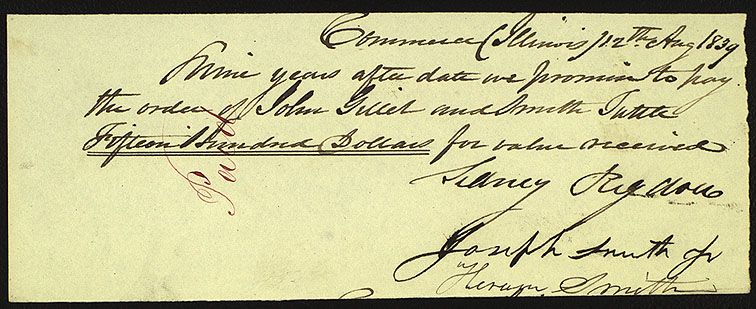 Commerce (Illinois) 12th Aug 1839
Nine years after date we promise to pay
the order of John Gillet and Smith Tuttle
Fifteen Hundred Dollars for value received
Sidney Rigdon
Joseph Smith Jr
Hiram Smith
Paid